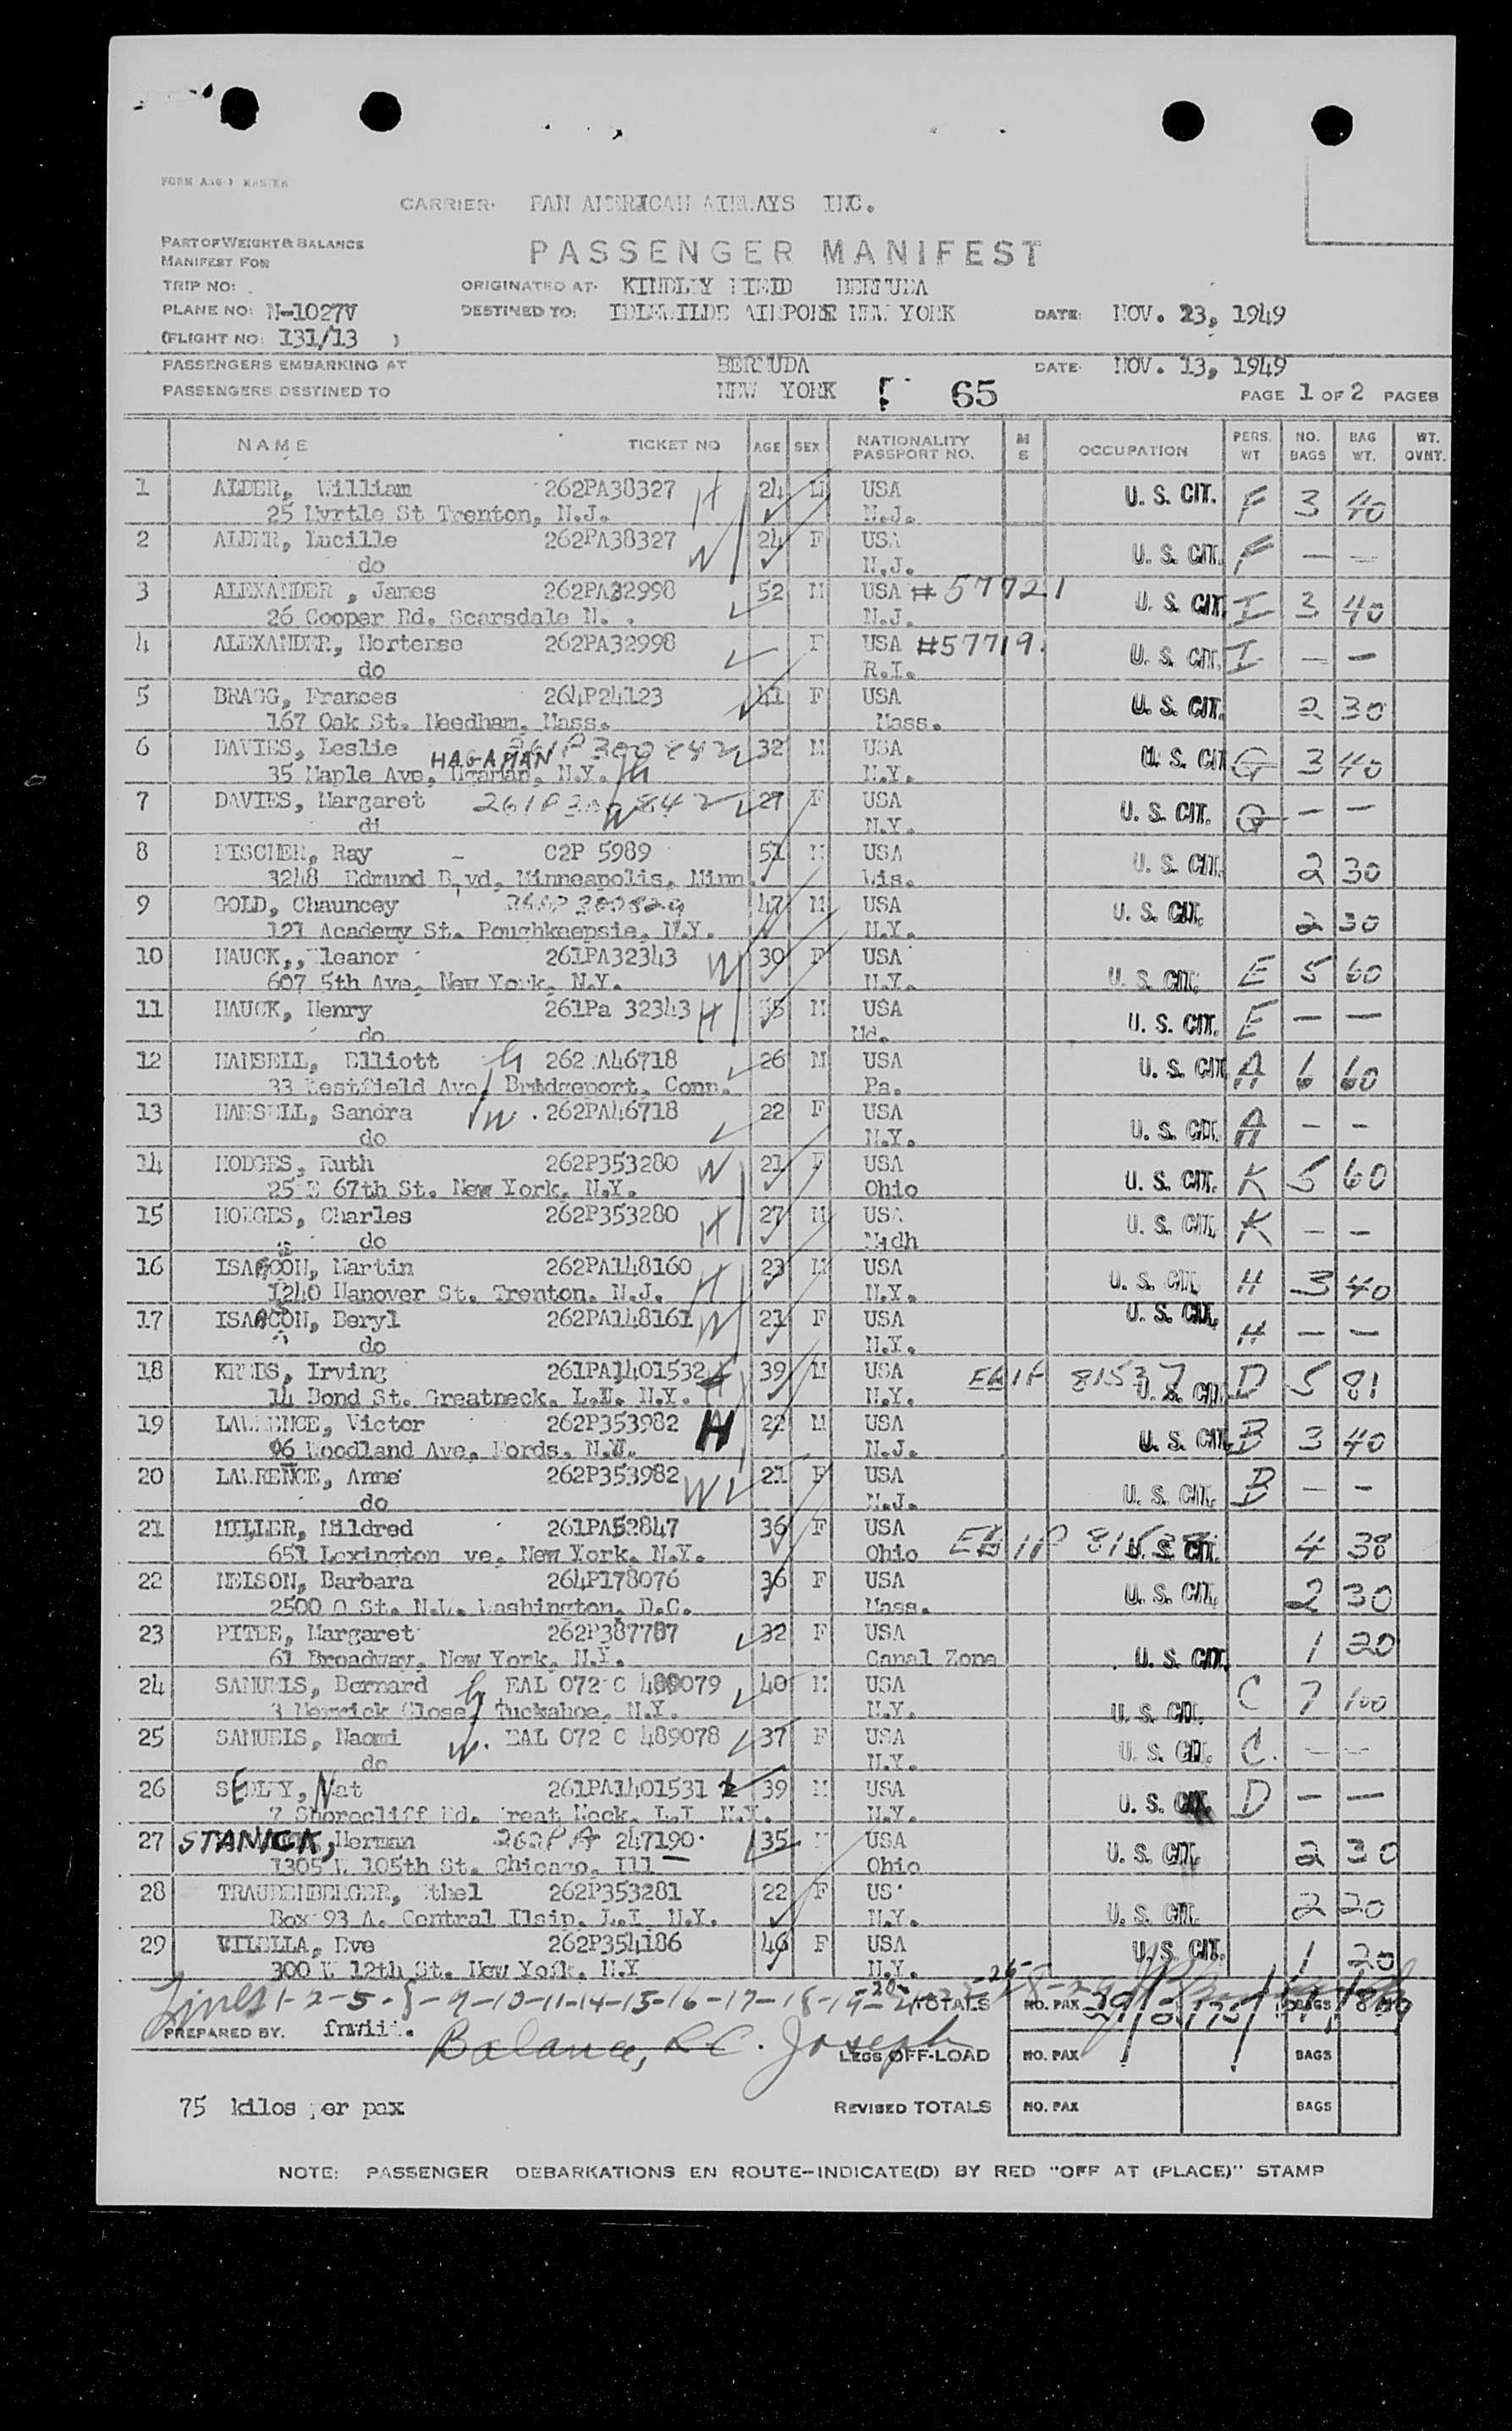 FORM AGG-1 MASTER
CARRIER: PAN AMERICAN AIRWAYS INC.
PART OF WEIGHT & BALANCE
MANIFEST FOR
PASSENGER MANIFEST
TRIP NO:
ORIGINATED AT: KINDLEY FIELD BERMUDA
PLANE NO: N-1027V
DESTINED TO: IDLEWILDE AIRPORT NEW YORK DATE: NOV. 23, 1949
(FLIGHT NO: 131/13 )
PASSENGERS EMBARKING AT BERMUDA DATE: NOV. 13, 1949
PASSENGERS DESTINED TO NEW YORK 65 PAGE 1 OF 2 PAGES
NAME TICKET NO AGE SEX NATIONALITY PASSPORT NO. M S OCCUPATION PERS. WT NO. BAGS BAG WT. WT. OVNT.
1 ALDER, William 262PA38327 H 24 M USA U. S. CIT. F 3 40
25 Myrtle St Trenton, N.J. N.J.
2 ALDER, Lucille 262PA38327 W 24 F USA U. S. CIT. F — —
do N.J.
3 ALEXANDER , James 262PA32998 52 M USA # 57721 U. S. CIT. I 3 40
26 Cooper Rd. Scarsdale N. . N.J.
4 ALEXANDER, Hortense 262PA32998 F USA #57719. U. S. CIT. I — —
do R.I.
5 BRAGG, Frances 264P24123 41 F USA U. S. CIT. 2 30
167 Oak St. Needham, Mass. Mass.
6 DAVIES, Leslie 261P300842 32 M USA U. S. CIT G 3 40
HAGAMAN
35 Maple Ave, N.Y. N.Y.
7 DAVIES, Margaret 261P300842 W 27 F USA U. S. CIT. G — —
di N.Y.
8 FISCHER, Ray - C2P 5989 51 M USA U. S. CIT. 2 30
3248 Edmund B,vd, Minneapolis, Minn. Wis.
9 GOLD, Chauncey 47 M USA U. S. CIT. 2 30
121 Academy St. Poughkeepsie, N.Y. N.Y.
10 HAUCK,, Eleanor 261PA32343 W 30 F USA U. S. CIT. E 5 60
607 5th Ave, New York, N.Y. N.Y.
11 HAUCK, Henry 261Pa 32343 H 35 M USA U. S. CIT. E — —
do Md.
12 HANSELL, Elliott h 262 A46718 26 M USA U. S. CIT A 6 60
33 Westfield Ave, Bridgeport, Conn. Pa.
13 HANSELL, Sandra W. 262PA46718 22 F USA U. S. CIT. A — —
do N.Y.
14 HODGES, Ruth 262P353280 W 21 F USA U. S. CIT. K 5 60
25 E 67th St. New York, N.Y. Ohio
15 HODGES, Charles 262P353280 H 27 M USA U. S. CIT. K — —
do
16 Martin 262PA148160 H 23 M USA U. S. CIT. H 3 40
1240 Hanover St. Trenton, N.J. N.Y.
17 Beryl 262PA148161 W 21 F USA U. S. CIT. H — —
do N.Y.
18 KREBS, Irving 261PA1401532 39 M USA U. S. CIT. D 5 81
14 Bond St. Greatneck, L.I. N.Y. N.Y.
19 LAWRENCE, Victor 262P353982 H 22 M USA U. S. CIT. B 3 40
96 Woodland Ave, Fords, N.J. N.J.
20 LAWRENCE, Anne 262P353982 W 21 F USA U. S. CIT. B — —
do N.J.
21 MILLER, Mildred 261PA52847 36 F USA U. S. CIT. 4 38
651 Lexington ve, New York, N.Y. Ohio
22 NELSON, Barbara 264P178076 36 F USA U. S. CIT. 2 30
2500 Q St. N.W. Washington, D.C. Mass.
23 Margaret 262P387787 32 F USA 1 20
61 Broadway, New York, N.Y. Canal Zone U. S. CIT.
24 SAMUELS, Bernard h EAL 072 C 489079 40 M USA C 7 100
3 Merrick Close, Tuckahoe, N.Y. N.Y. U. S. CIT.
25 SAMUELS, Naomi W. EAL 072 C 489078 37 F USA U. S. CIT. C. — —
do N.Y.
26 SEDLEY, Nat 261PA1401531 39 M USA U. S. CIT. D — —
7 Shorecliff Rd. Great Neck, L.I. N.Y. N.Y.
27 STANICK, Herman 262PA 247190. 35 M USA U. S. CIT. 2 30
1305 W 105th St. Chicago, Ill Ohio
28 TRAUDENBERGER, Ethel 262P353281 22 F US U. S. CIT. 2 20
Box 93 A. Central Ilsip, L.I. N.Y. N.Y.
29 VILELLA, Eve 262P354186 46 F USA U. S. CIT. 1 20
300 W 12th St. New York, N.Y N.Y.
Lines 1-2-5-8-9-10-11-14-15-16-17-18-19-20-21- TOTALS NO. PAX BAGS
PREPARED BY.
Balance, R.C. Joseph
LEGS OFF-LOAD NO. PAX BAGS
75 kilos per pax
REVISED TOTALS NO. PAX BAGS
NOTE: PASSENGER DEBARKATIONS EN ROUTE-INDICATE(D) BY RED "OFF AT (PLACE)" STAMP